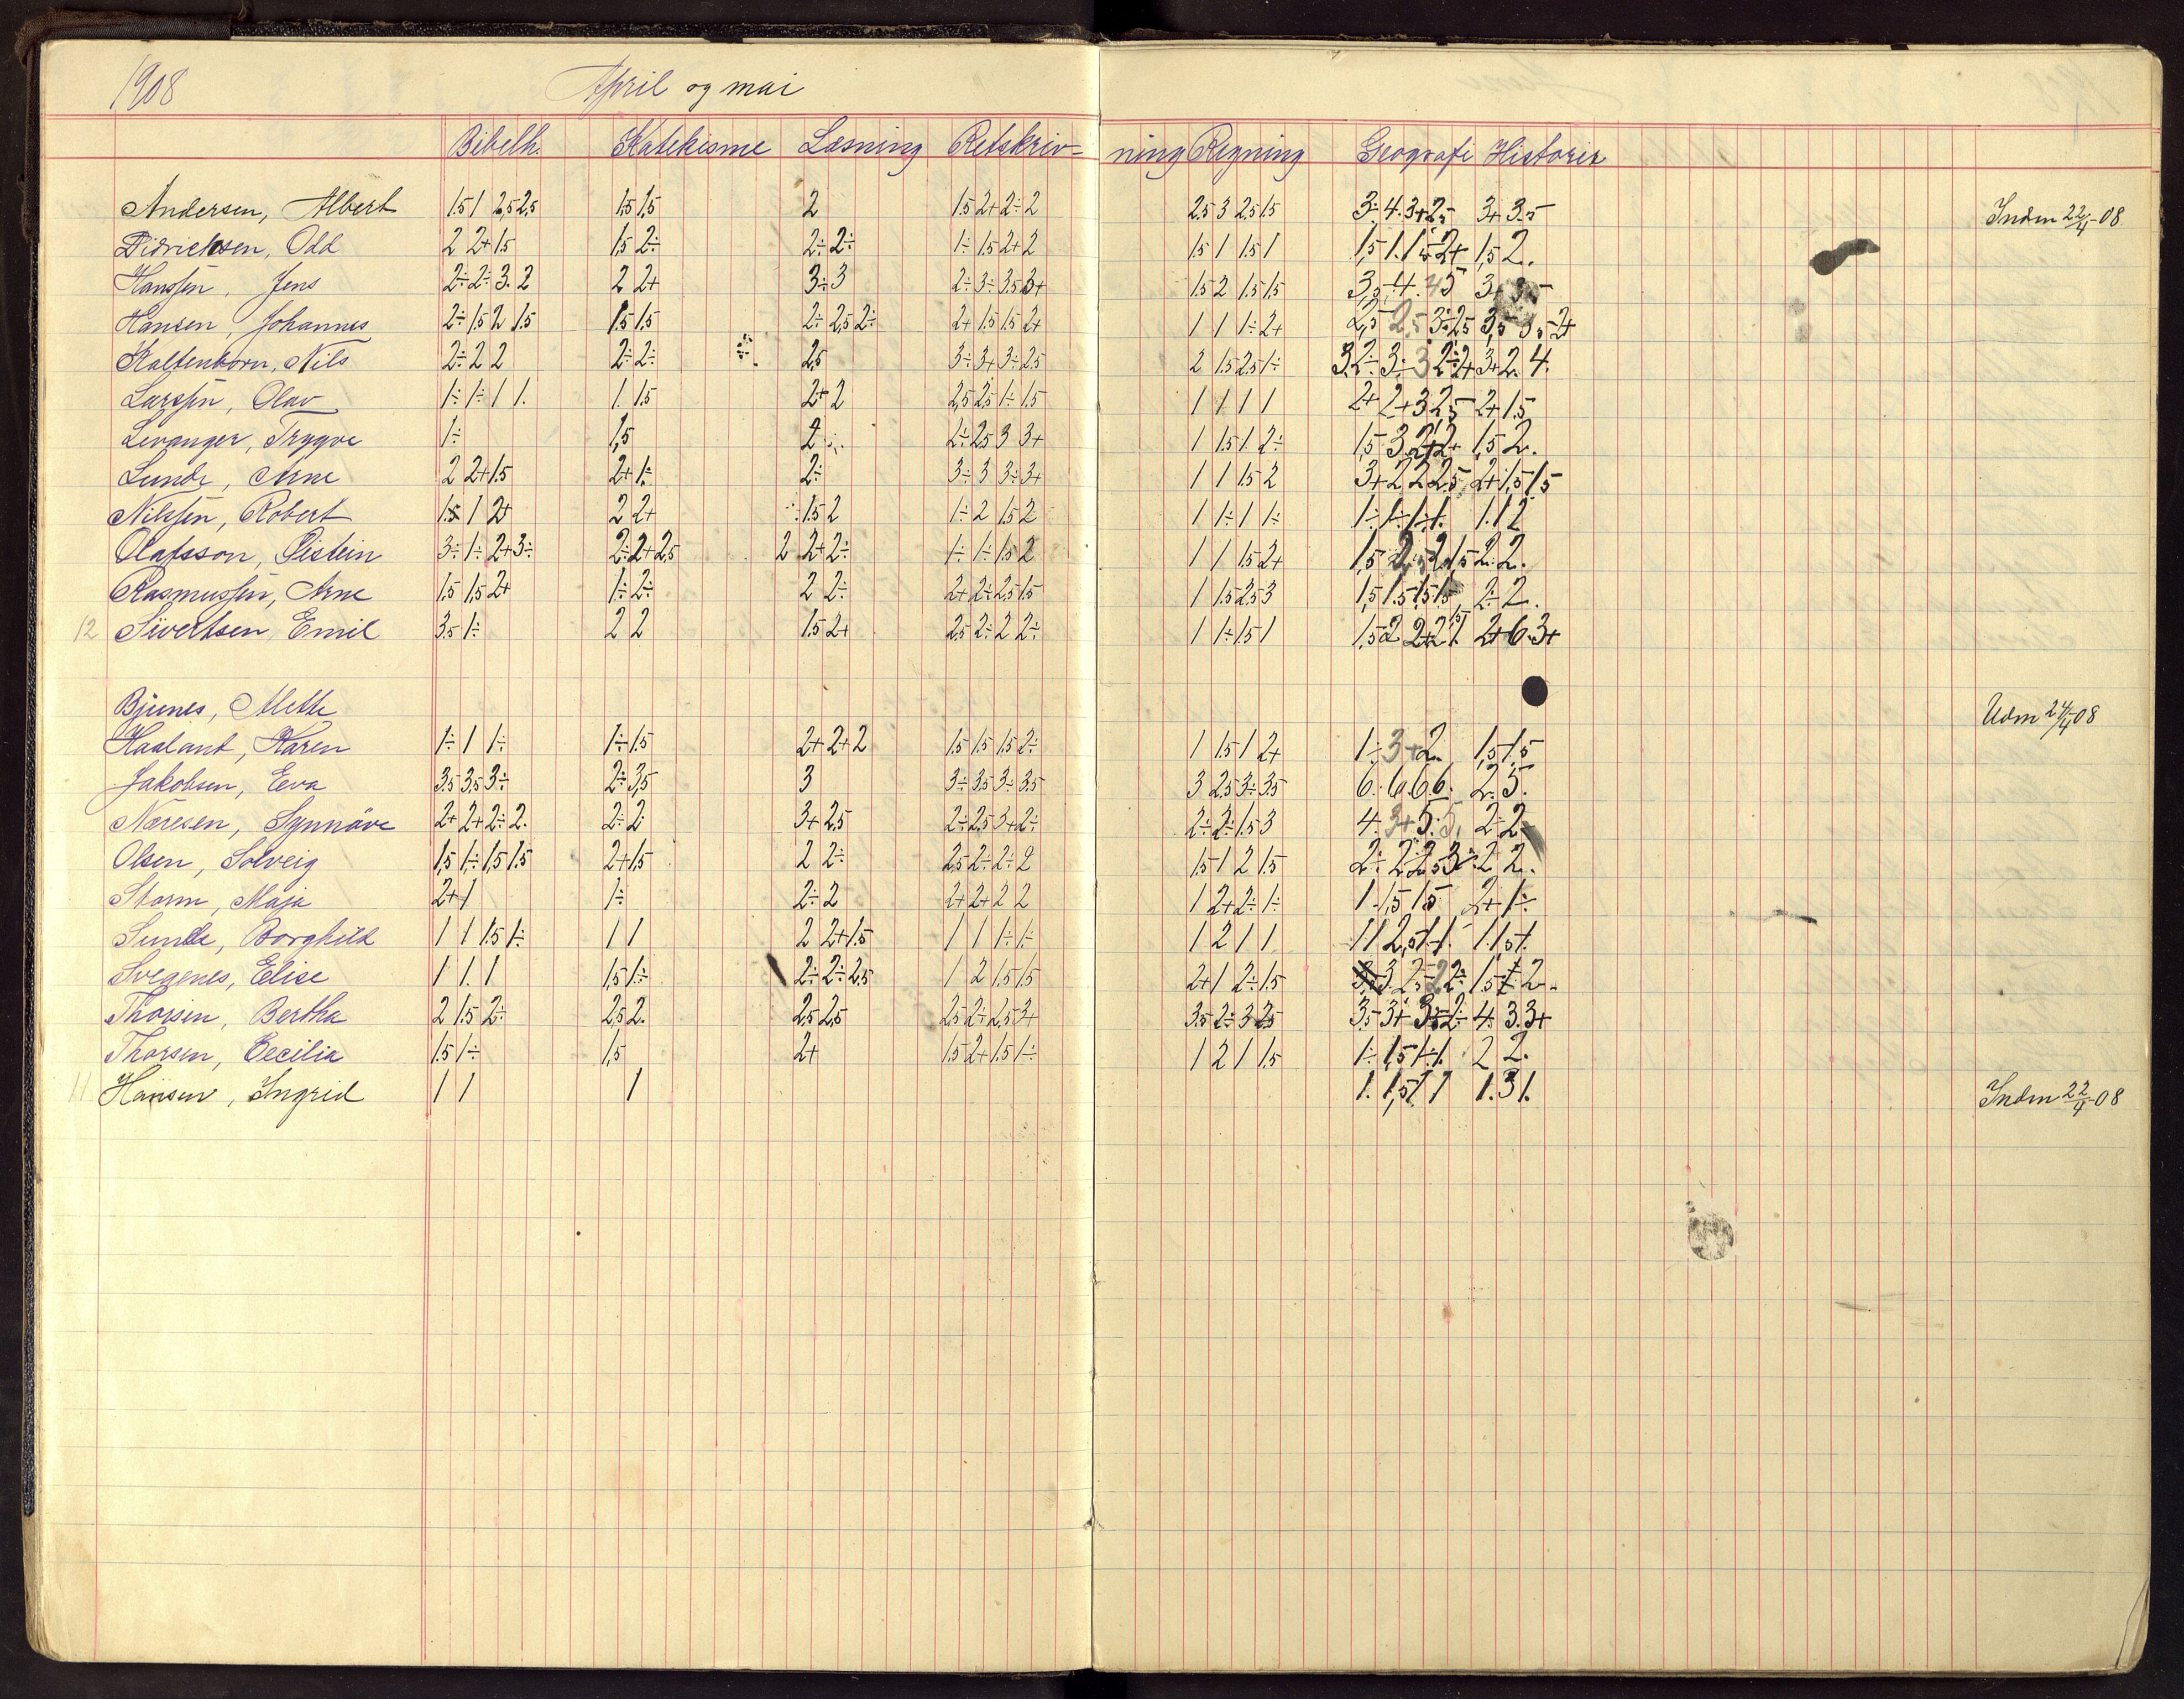 1908 April og mai
Bibelh. Katekisme Læsning Retskriv= ning Regning Geografi Historie
Andersen, Albert 1.5 1 2,5 2,5 1,5 1,5 2 1.5 2+ 2÷ 2 2.5 3 2.5 1.5 3÷ 4. 3+ 2,5 3+ 3.5 Indm 22/4-08
Didrichsen, Odd 2 2+ 1.5 1.5 2÷ 2÷ 2÷ 1÷ 1.5 2+ 2 1.5 1 1.5 1 1,5 1. 1,5 2+ 1,5 2.
Hanssen, Jens 2÷ 2÷ 3. 2 2 2+ 3÷ 3 2÷ 3÷ 3.5 3+ 1.5 2 1.5 1.5
Hansen, Johannes 2÷ 1,5 2 1.5 1.5 1.5 2÷ 2,5 2÷ 2+ 1.5 1.5 2+ 1 1 1÷ 2+
Kaltenborn, Nils 2÷ 2 2 2÷ 2÷ 2,5 3÷ 3+ 3÷ 2.5 2 1.5 2.5 1÷ 3+ 2. 4.
Larssen, Olav 1÷ 1÷ 1 1. 1. 1.5 2+ 2 2,5 2,5 1÷ 1.5 1 1 1 1 2+ 2+ 3 2,5 2+ 1.5
Levanger, Trygve 1÷ 1,5 2 2÷ 2.5 3 3+ 1 1.5 1. 2÷ 1,5 3. 2+ 2+ 1,5 2.
Lunde, Arne 2 2+ 1.5 2+ 1÷ 2÷ 3÷ 3 3÷ 3+ 1 1 1.5 2 3+ 2 2 2.5 2+ 1,5 1,5
Nilssen, Robert 1.5 1 2+ 2 2+ 1.5 2 1÷ 2 1.5 2 1 1÷ 1 1÷ 1÷ 1÷ 1÷ 1. 1. 1 2
Olafsson, Øistein 3÷ 1÷ 2+ 3÷ 2÷ 2+ 2,5 2 2+ 2÷ 1÷ 1÷ 1.5 2 1 1 1.5 2+ 1,5 2. 2.
Rasmussen, Arne 1.5 1,5 2+ 1÷ 2÷ 2 2÷ 2+ 2÷ 2,5 1.5 1 1.5 2.5 3 1,5 1.5 1,5 1,5 2÷ 2.
12 Sivertsen, Emil 3.5 1÷ 2 2 1.5 2+ 2,5 2÷ 2 2÷ 1 1÷ 1.5 1 1,5 2 2+ 2 1,5 1. 2+ 6. 3+
Bjunes, Mette Udm 24/4-08
Haaland, Karen 1÷ 1 1÷ 1÷ 1.5 2+ 2+ 2 1.5 1.5 1.5 2÷ 1 1.5 1 2+ 1÷ 3+ 2. 1,5 1,5
Jakobsen, Eva 3.5 3,5 3÷ 2÷ 3,5 3 3÷ 3.5 3÷ 3.5 3 2.5 3÷ 3.5 6. 6. 6. 6. 2. 5.
Næresen, Synnöve 2+ 2+ 2÷ 2. 2÷ 2 3+ 2,5 2÷ 2,5 3+ 2÷ 2÷ 2÷ 1.5 3 4. 3+ 5. 5. 2÷ 2.
Olsen, Solveig 1,5 1÷ 1,5 1.5 2+ 1,5 2 2÷ 2,5 2÷ 2÷ 2 1.5 1 2 1.5 2÷ 2. 2.5 3÷ 2 2.
Storm, Maja 2+ 1 1÷ 2÷ 2 2+ 2+ 2 2 1 2+ 2÷ 1÷ 1. 1,5 1,5 2+ 1÷
Sunde, Borghild 1 1 1.5 1÷ 1 1 2 2+ 1.5 1 1 1÷ 1÷ 1 2 1 1 1 1 2,5 1. 1. 1. 1,5 1.
Svegenes, Elise 1 1. 1 1,5 1÷ 2÷ 2÷ 2.5 1 2 1.5 1.5 2+ 1 2÷ 1.5 3. 2.5 2 2÷ 1.5 2.
Thorsen, Bertha 2 1.5 2÷ 2,5 2. 2,5 2,5 2.5 2÷ 2,5 3+ 3.5 2÷ 3 2.5 3.5 3+ 3.5 2÷ 4. 3. 3+
Thorsen, Cecilia 1.5 1÷ 1,5 2+ 1.5 2+ 1.5 1÷ 1 2 1 1.5 1÷ 1,5 1÷ 1. 2 2.
11 Hansen, Ingrid 1 1 1 1. 1,5 1. 1 1. 3 1. Indm 22/4-08